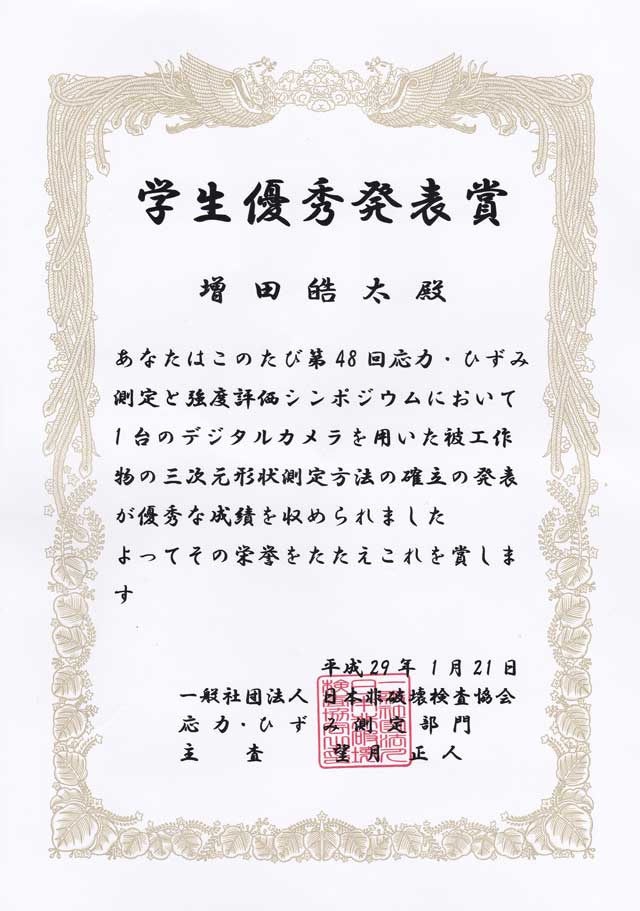 学生優秀発表賞
増田皓太殿
あなたはこのたび第48回応力・ひずみ
測定と強度評価シンポジウムにおいて
1台のデジタルカメラを用いた被工作
物の三次元形状測定方法の確立の発表
が優秀な成績を収められました
よってその栄誉をたたえこれを賞しま
す
平成29年1月21日
一般社団法人 日本非破壊検査協会
応力・ひずみ測定部門
主査 望月正人